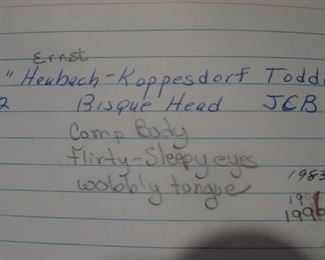 Ernst
" Heubach-Koppesdorf Todd
2 Bisque Head JCB
Comp Body
flirty-Sleepy eyes
wobbly tongue
1983
1996